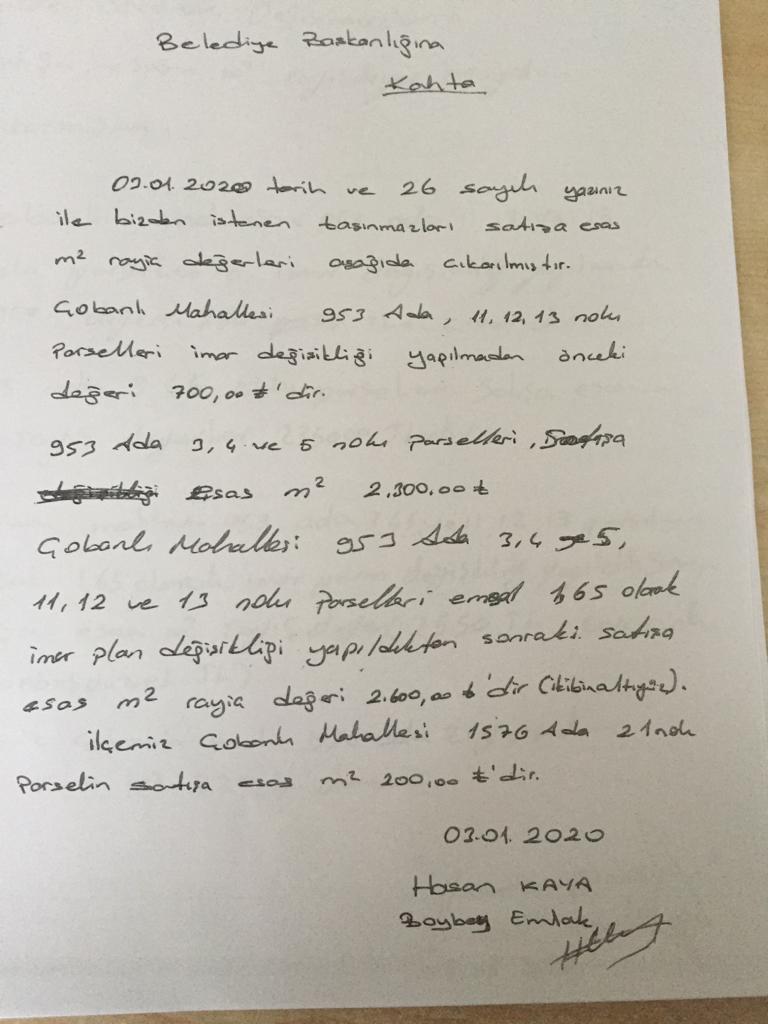 Belediye Başkanlığına
Kahta
03.01.2020 tarih ve 26 sayılı yazınız
ile bizden istenen taşınmazları satışa esas
m² rayiç değerleri aşağıda çıkarılmıştır.
Çobanlı Mahallesi 953 Ada, 11, 12, 13 nolu
Parselleri imar değişikliği yapılmadan önceki
değeri 700,00 ₺'dir.
953 Ada 3, 4 ve 5 nolu parselleri, Satışa
esas m² 2.300.00 ₺
Çobanlı Mahallesi 953 Ada 3, 4 ve 5,
11, 12 ve 13 nolu Parselleri emsal 1,65 olarak
imar plan değişikliği yapıldıktan sonraki satışa
esas m² rayiç değeri 2.600,00 ₺'dir (ikibinaltıyüz).
ilçemiz Çobanlı Mahallesi 1576 Ada 21 nolu
Parselin satışa esas m² 200,00 ₺'dir.
03.01.2020
Hasan KAYA
Boybey Emlak